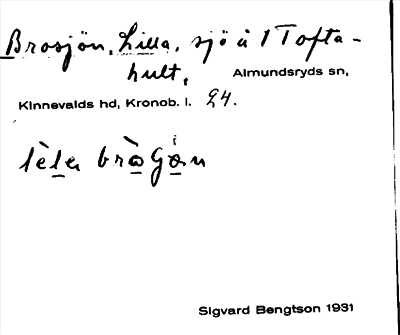 Brosjön, Lilla, sjö å 1 Tofta-
hult, Almundsryds sn,
Kinnevalds hd, Kronob. l. 24.
Sigvard Bengtson 1931